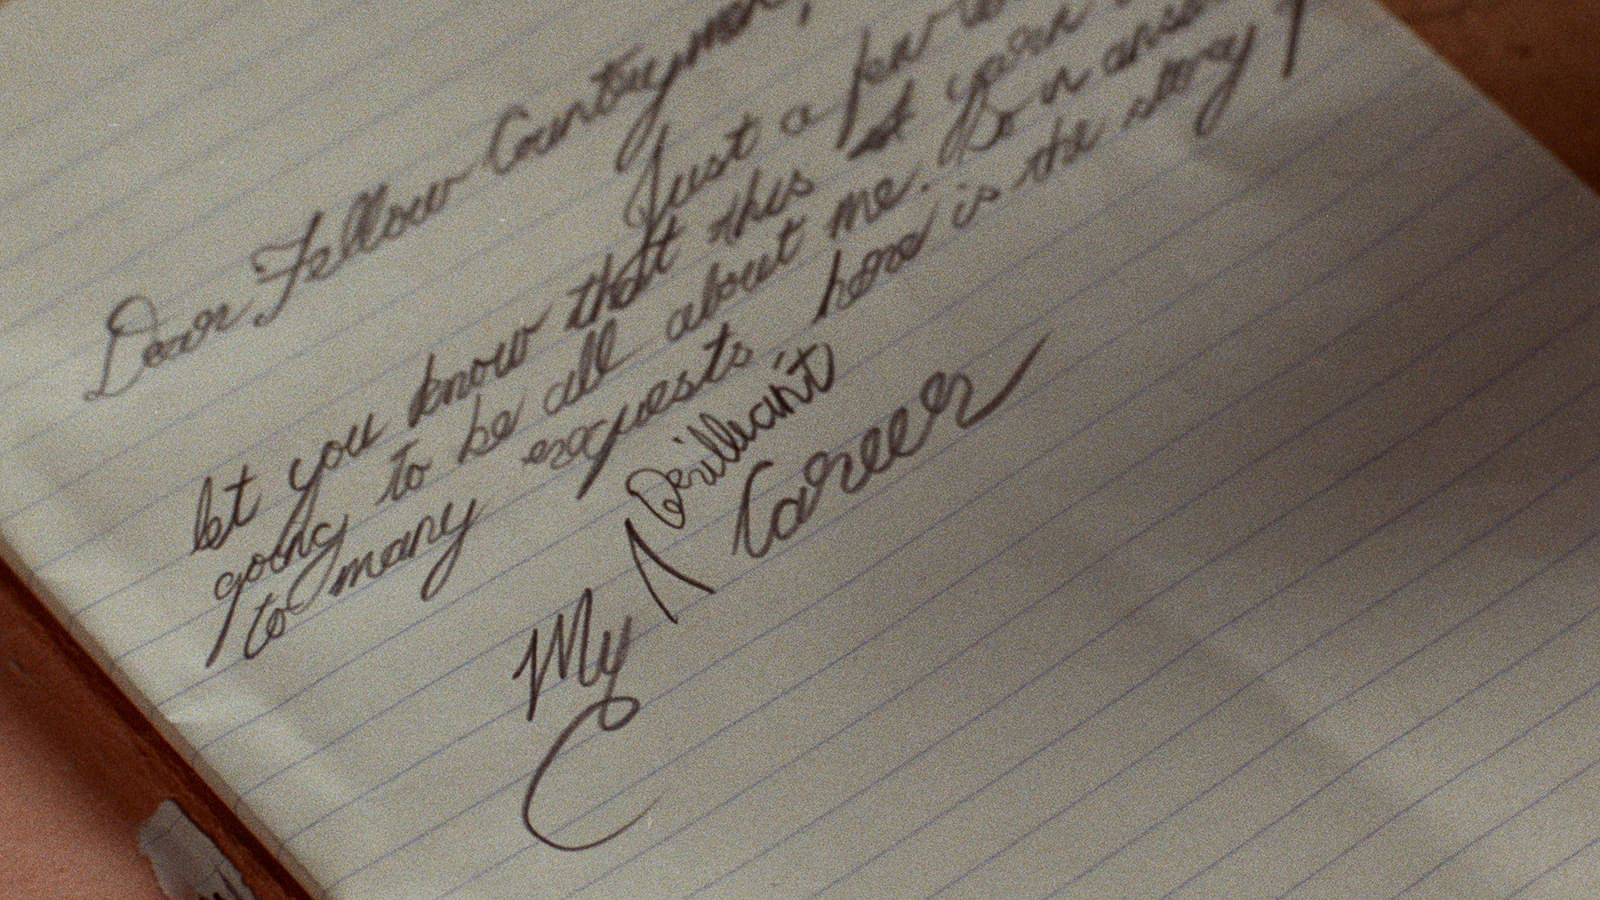 Dear Fellow Countrymen,
Just a few
let you know that this yarn
going to be all about me. So in
to many requests here is the story
My ^ Brilliant Career